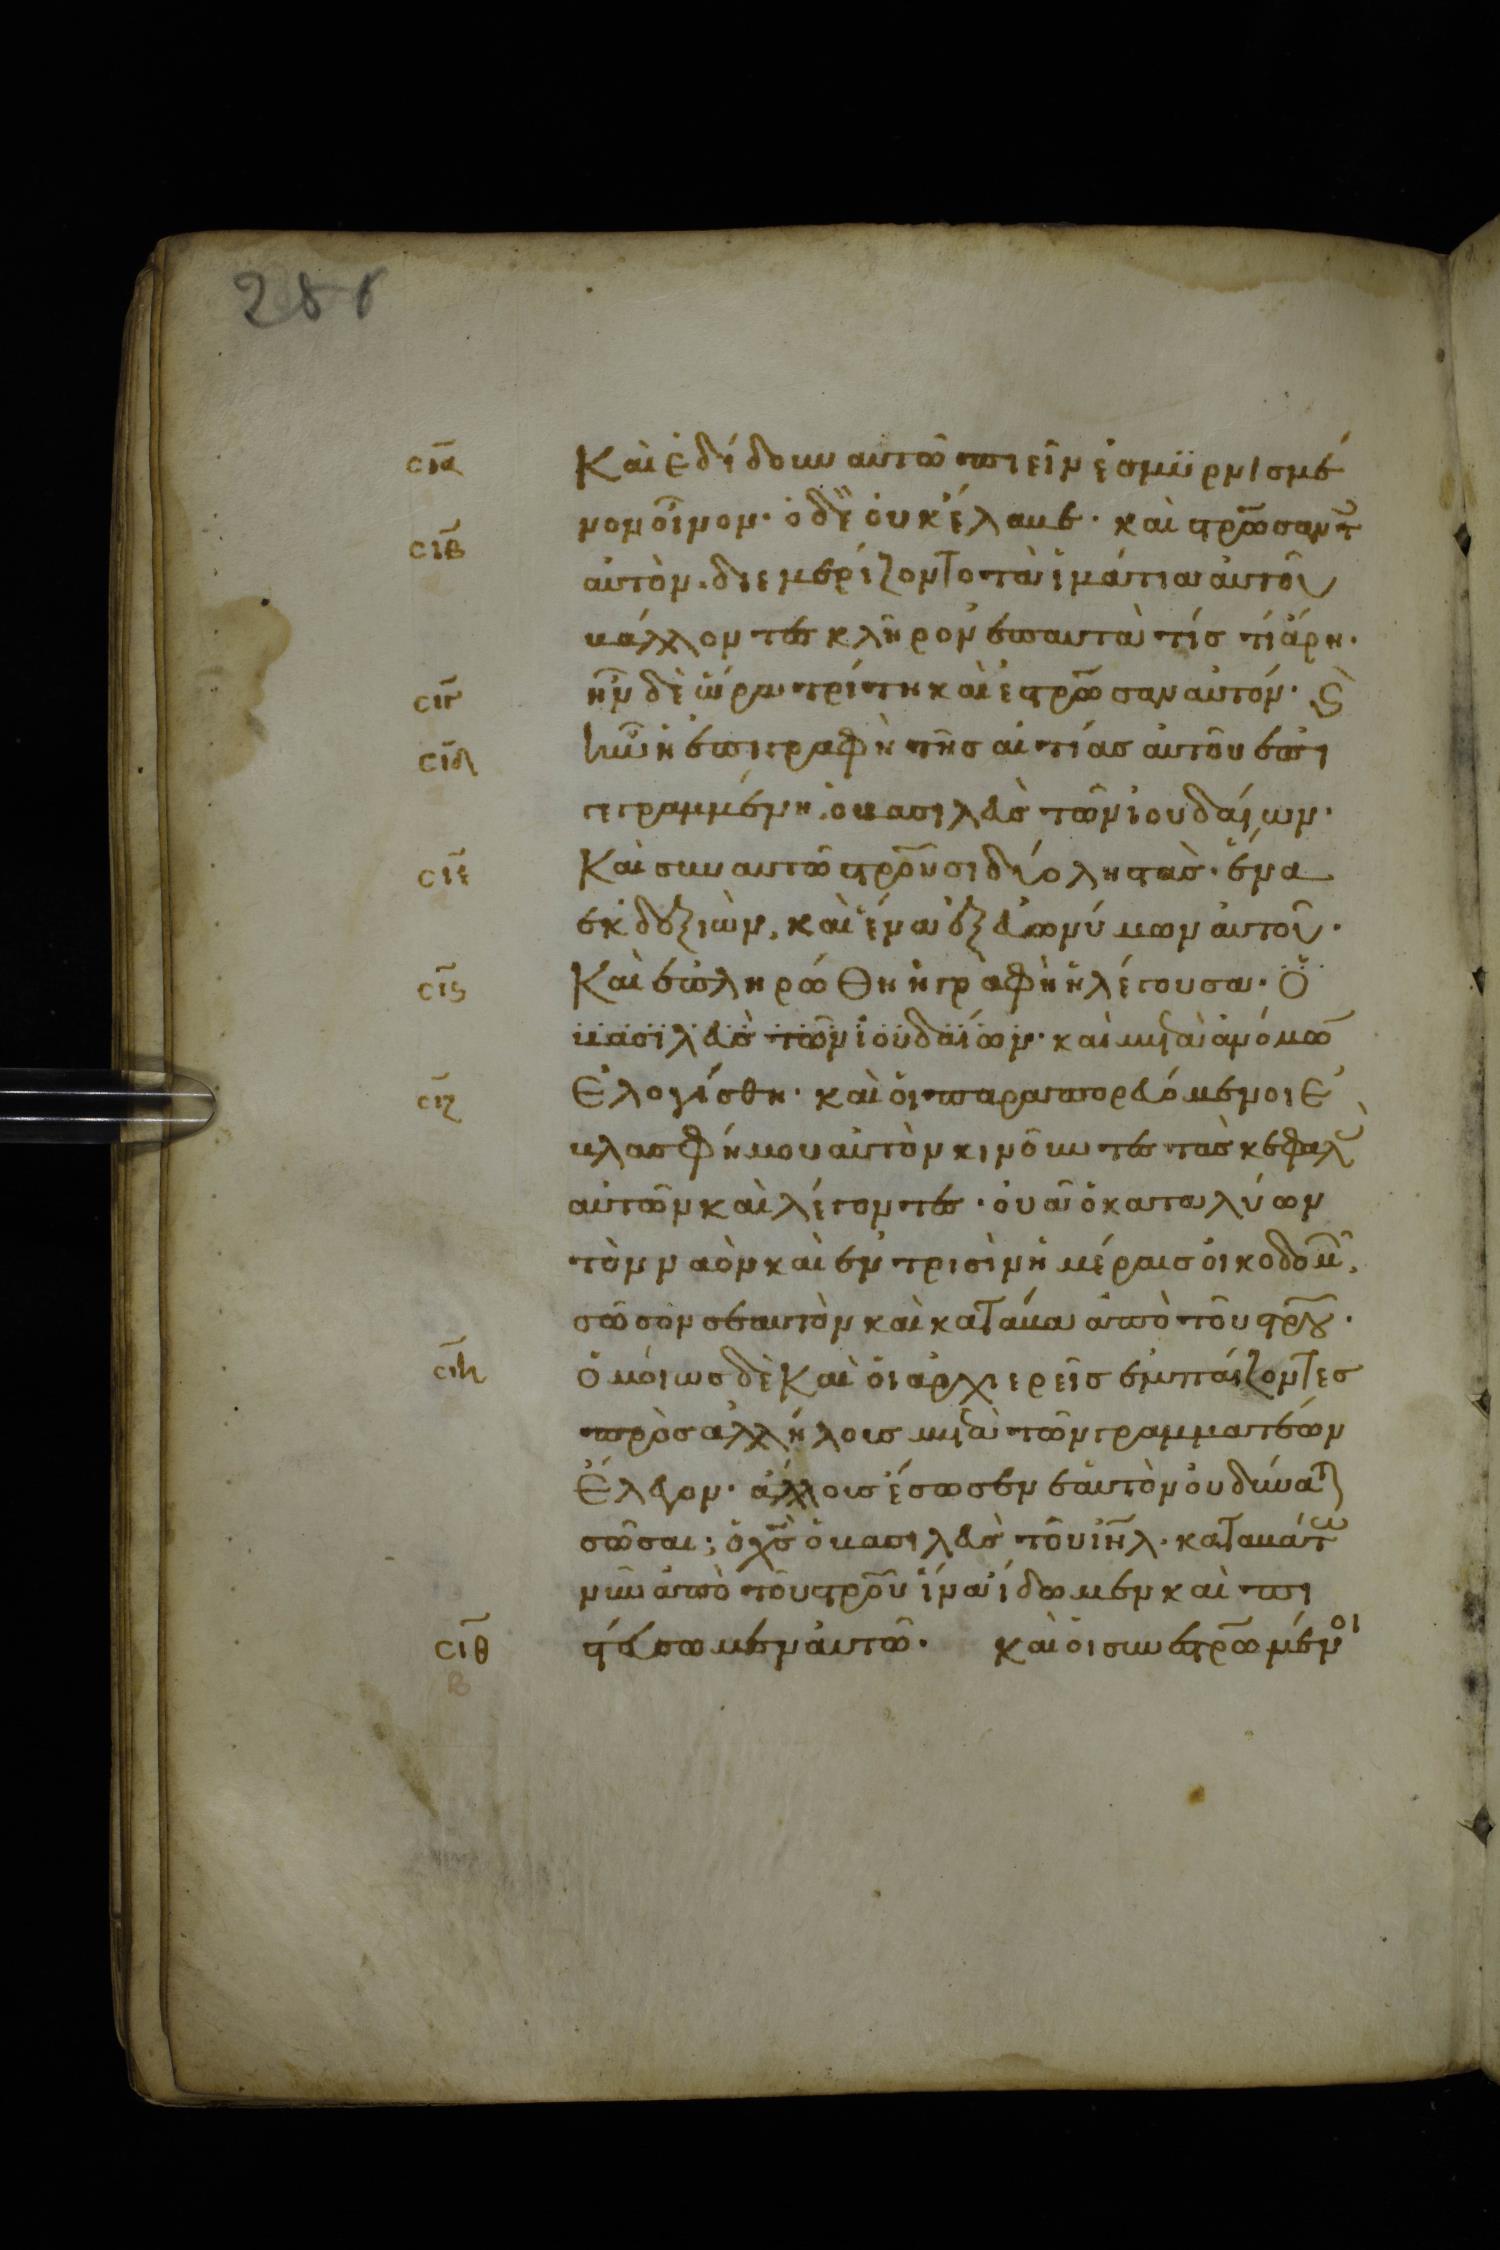 288
σια Καὶ ἐδίδουν αυτῶ πιεῖν ἐσμϋρνισμέ
νον οἶνον· ὁ δὲ ὀυκ ἔλαβε· καὶ στρ̅ωσαντ
σιβ αὐτὸν. διεμερίζοντο τὰ ἱμάτια αὐτοῦ
βάλλοντες κλῆρον ἐπ αυτὰ τίσ τί ἄρη·
σιγ ἦν δὲ ὥρα τρίτη καὶ ἐστρ̅ωσαν αὐτόν· ϗ
σιδ ἦν ἡ ἐπιγραφὴ τῆσ αἰτίασ ἀυτοῦ ἐπι
γεγραμμένη. ὁ βασιλεὺσ τῶν ἰουδαίων·
σιε Καὶ συν αυτῶ στρ̅οῦσι δύο ληστάσ· ἕνα
ἐκ δεξιῶν, καὶ ἕνα ἐξ ἐυωνύμων ἀυτοῦ·
σις Καὶ ἐπληρώθη ἡ γραφὴ ἡ λέγουσα· Ὁ
βασιλεὺσ τῶν ἰουδαίων· καὶ μετὰ ἀνόμω̅
σιζ Ἐλογίσθη· καὶ ὁι παραπορευόμενοι ἐ
βλασφήμουν αὐτὸν κινοῦντες τὰσ κεφαλ
αὐτῶν καὶ λέγοντες· ὀυὰ ὁ καταλύων
τὸν ναὸν καὶ ἐν τρισὶν ἡμέραισ ὀικοδομ,
σῶσον σεαυτὸν καὶ κατάβα ἀπὸ τοῦ στρ̅ου·
σιη Ὁμόιωσ δὲ Καὶ ὁι ἀρχιερεῖσ ἐμπάιζοντεσ
πρὸσ ἀλλήλουσ μετὰ τῶν γραμματέων
Ἔλεγον· ἄλλουσ ἔσωσεν ἑαυτὸν ὀυ δύναται
σῶσαι; ὁ χ̅σ ὁ βασιλεὺσ τοῦ ι̅η̅λ· καταβάτω
νῦν ἀπὸ τοῦ στρ̅οῦ ἵνα ἴδωμεν καὶ πι
σιθ στεύσωμεν ἀυτῶ· καὶ ὁι συνεστρ̅ωμένοι